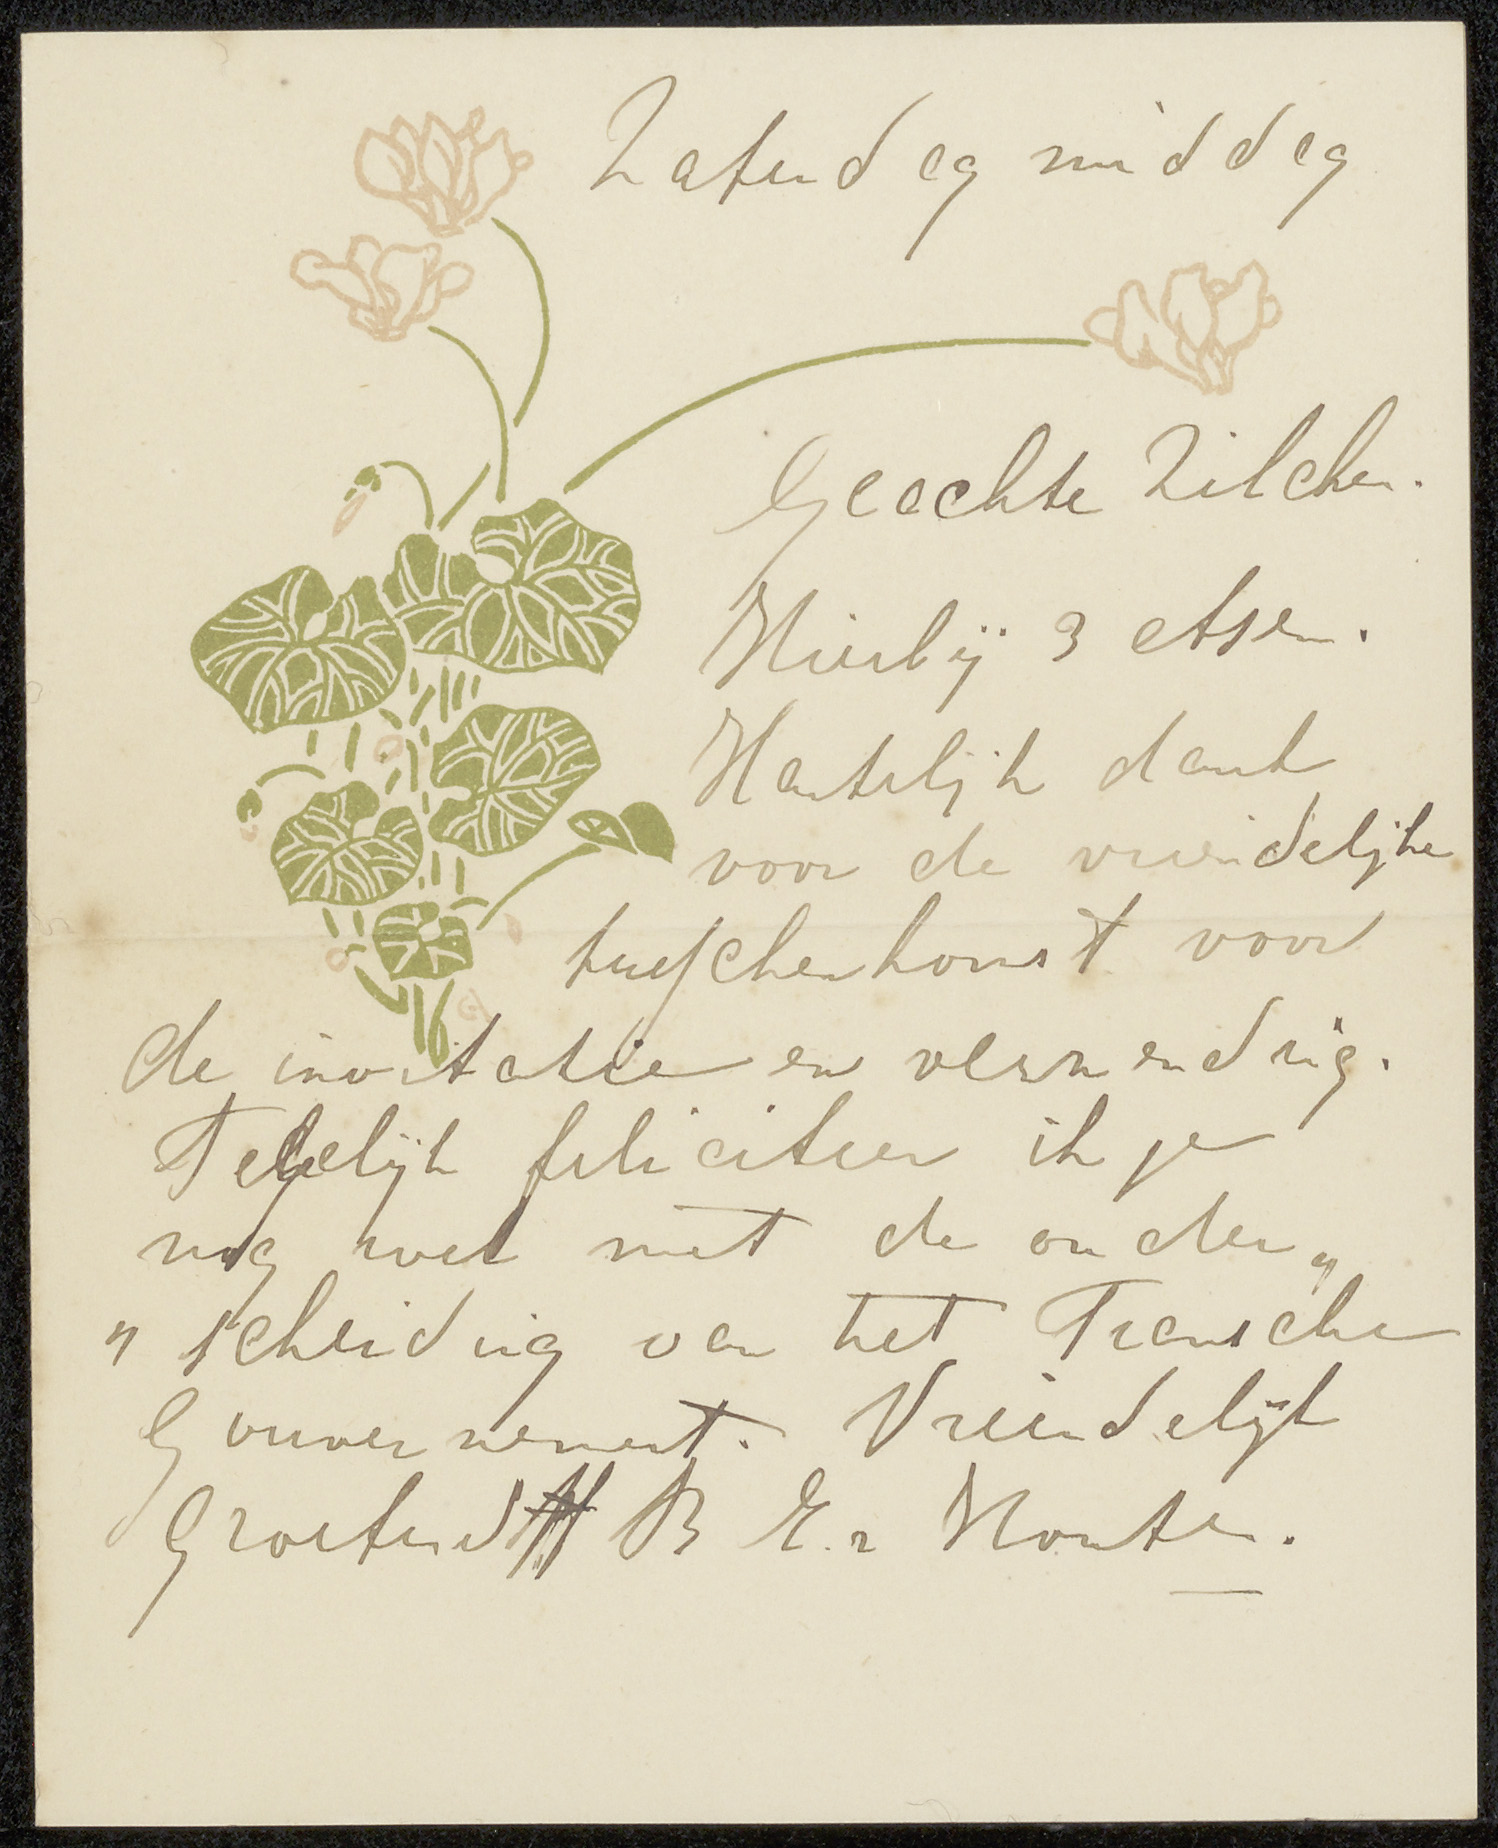 Zaterdag middag
Geachte Zilcken.
Hierbij 3 etsen.
Hartelijk dank
voor de vriendelijke
tusschenkomst voor
de invitatie en verzending.
Tegelijk feliciteer ik je
nog wel met de onder„
„scheiding van het Fransche
Gouvernement. Vriendelijk
Groetend B E. Houten.